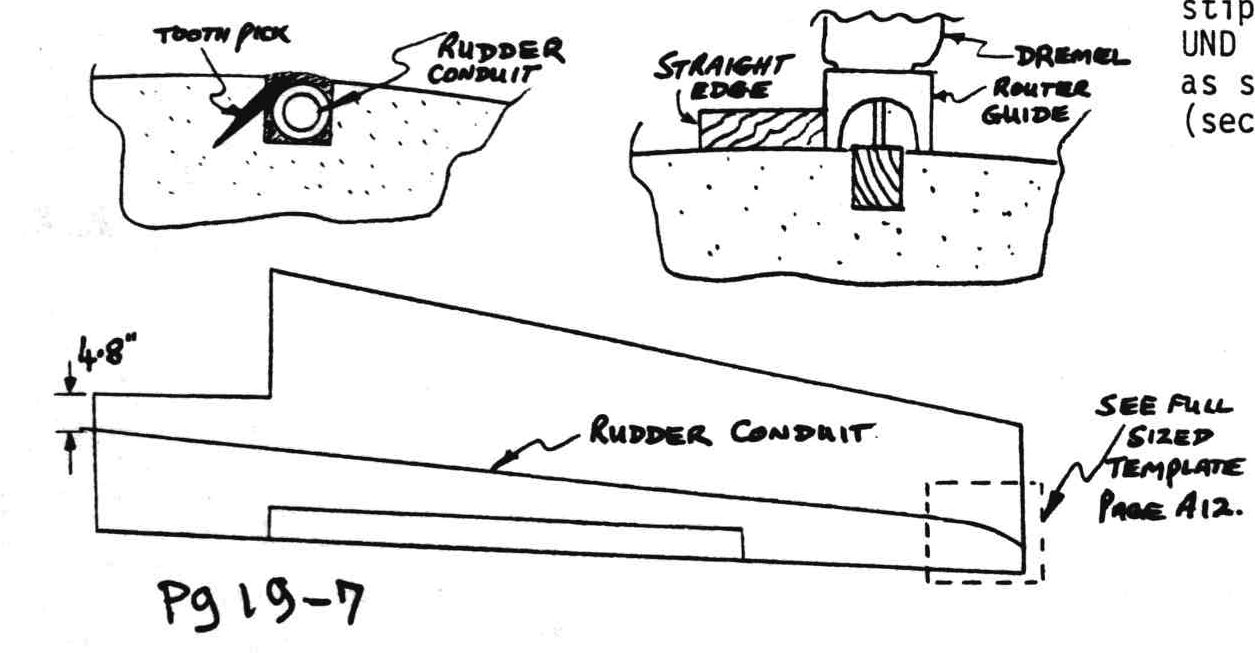 TOOTH PICK
RUDDER
CONDUIT
STRAIGHT
EDGE
DREMEL
ROUTER
GUIDE
stip
UND
as s
(sec
4.8"
RUDDER CONDUIT.
SEE FULL
SIZED
TEMPLATE
PAGE A12.
Pg 19-7